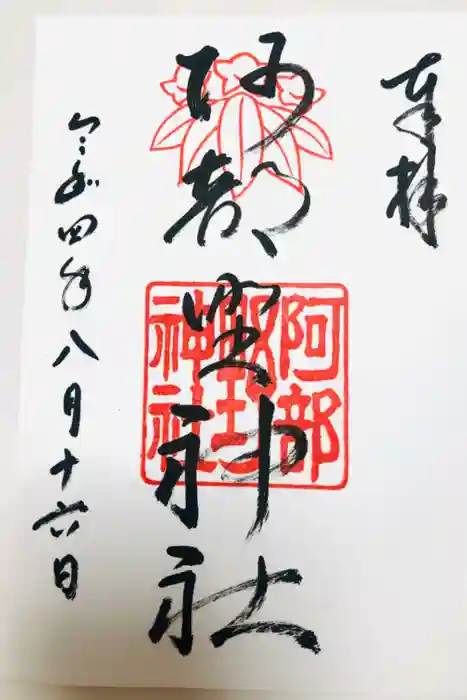 奉拝
阿部野神社
阿部野神社
令和四年八月十六日